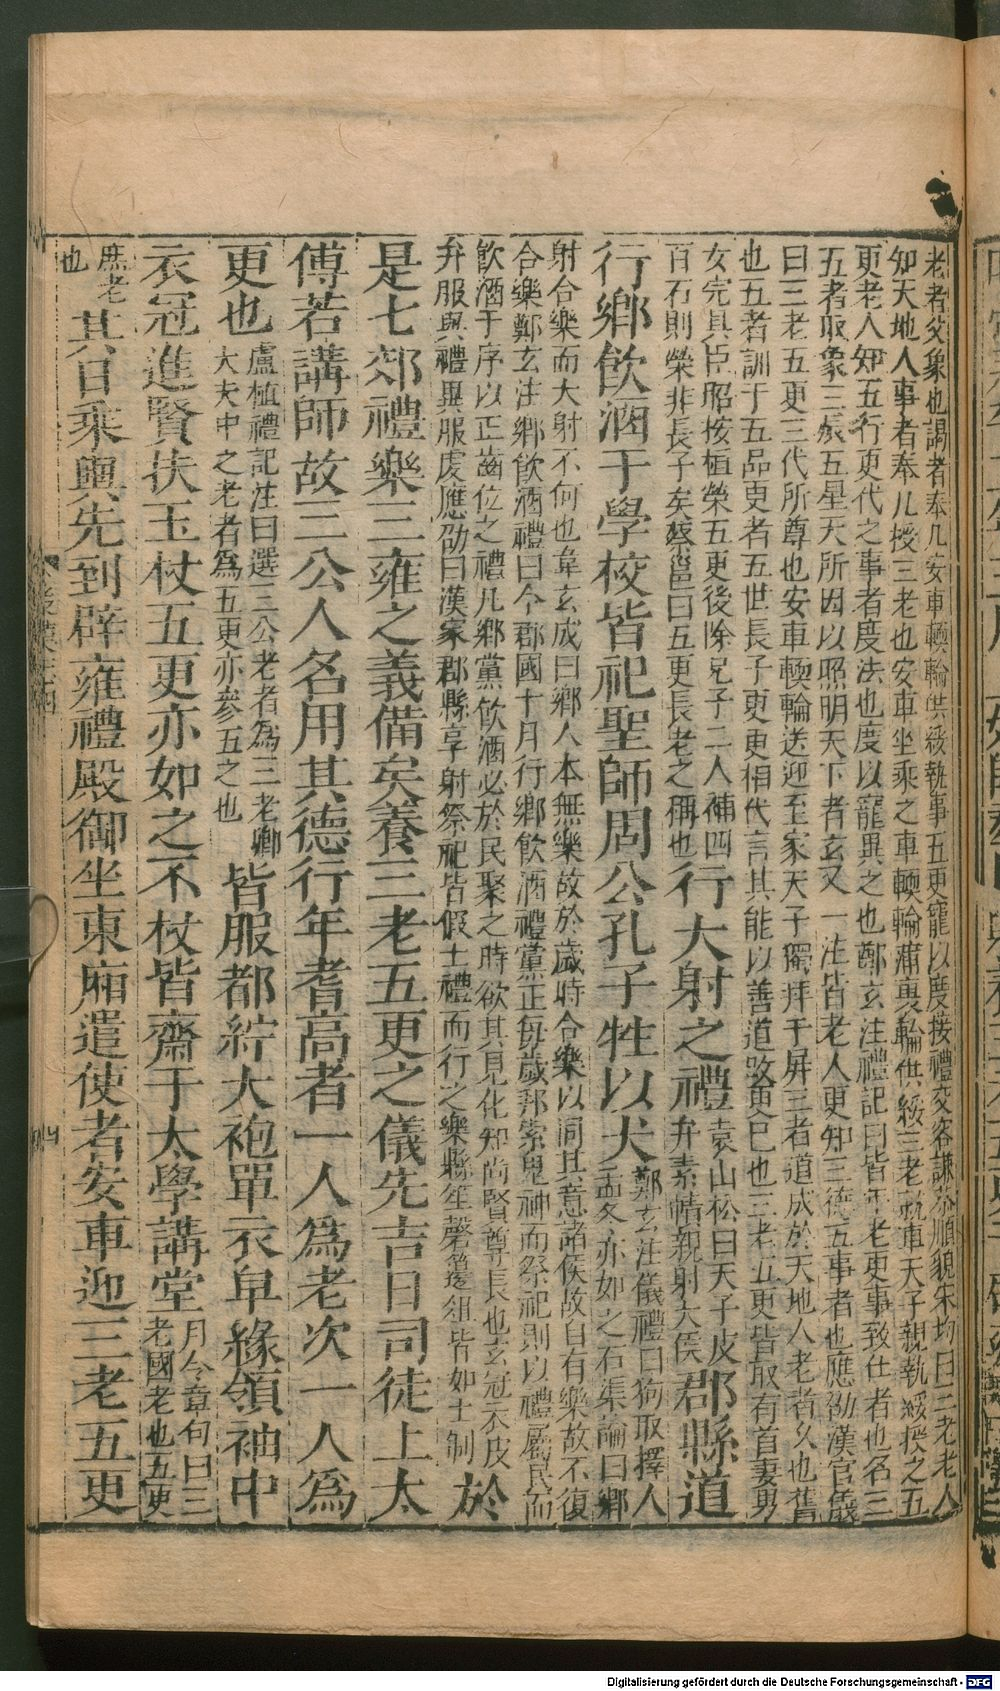 老者父象也謁者奉几安車輭輪供綏執事五更寵以度接禮交容謙恭順貌宋均曰三老老人
知天地人事者奉几授三老也安車坐乘之車輭輪蒲裹輪供綏三老就車天子親執綏授之五
更老人知五行更代之事者度法也度以寵異之也鄭玄注禮記曰皆年老更事致仕者也名三
五者取象三辰五星天所因以照明天下者玄又一注皆老人更知三德五事者也應劭漢官儀
曰三老五更三代所尊也安車輭輪送迎至家天子獨拜于屏三者道成於天地人老者久也舊
也五者訓于五品更者五世長子更更相代言其能以善道改更己也三老五更皆取有首妻男
女完具臣昭按桓榮五更後除兄子二人補四
百石則榮非長子矣蔡邕曰五更長老之稱也
行大射之禮
袁山松曰天子皮
弁素幘親射大侯
郡縣道
行鄉飲酒于學校皆祀聖師周公孔子牲以犬
鄭玄注儀禮曰狗取擇人
孟冬亦如之石渠論曰鄉
射合樂而大射不何也韋玄成曰鄉人本無樂故於歲時合樂以同其意諸侯故自有樂故不復
合樂鄭玄注鄉飲酒禮曰今郡國十月行鄉飲酒禮黨正每歲邦索鬼神而祭祀則以禮屬民而
飲酒于序以正齒位之禮凡鄉黨飲酒必於民聚之時欲其見化知尚賢尊長也玄冠衣皮
弁服與禮異服虔應劭曰漢家郡縣享射祭祀皆假士禮而行之樂縣笙磬籩俎皆如士制
於
是七郊禮樂三雍之義備矣養三老五更之儀先吉日司徒上太
傅若講師故三公人名用其德行年耆高者一人為老次一人為
更也
盧植禮記注曰選三公老者為三老卿
大夫中之老者為五更亦參五之也
皆服都紵大袍單衣皁緣領袖中
衣冠進賢扶玉杖五更亦如之不杖皆齋于太學講堂
月令章句曰三
老國老也五更
庶老
也
其日乘輿先到辟雍禮殿御坐東廂遣使者安車迎三老五更
Digitalisierung gefördert durch die Deutsche Forschungsgemeinschaft - DFG